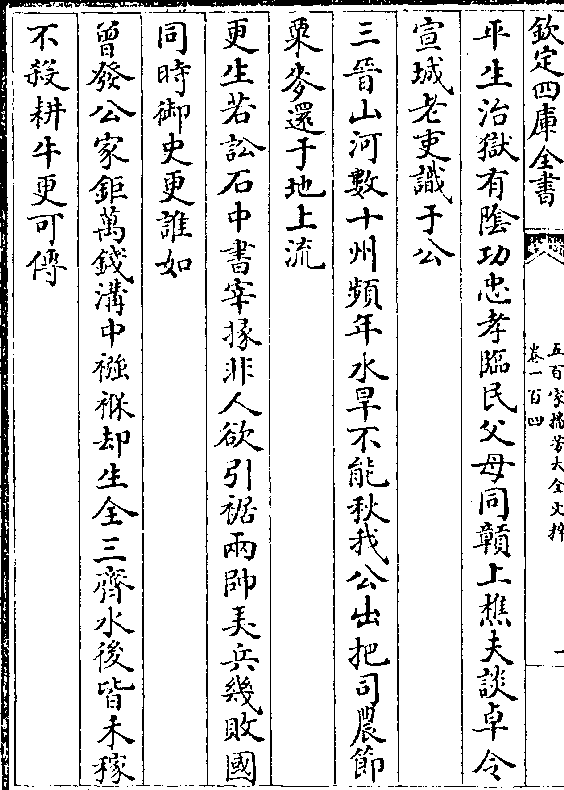 欽定四庫全書
五百家播芳大全文粹
卷一百四
平生治獄有陰功忠孝臨民父母同贛上樵夫談卓令
宣城老吏識于公
三晉山河數十州頻年水旱不能秋我公出把司農節
粟麥還于地上流
更生若訟石中書宰掾非人欲引裾兩帥美兵幾敗國
同時御史更誰如
曾發公家鉅萬錢溝中襁褓却生全三齊水後皆禾稼
不殺耕牛更可傳